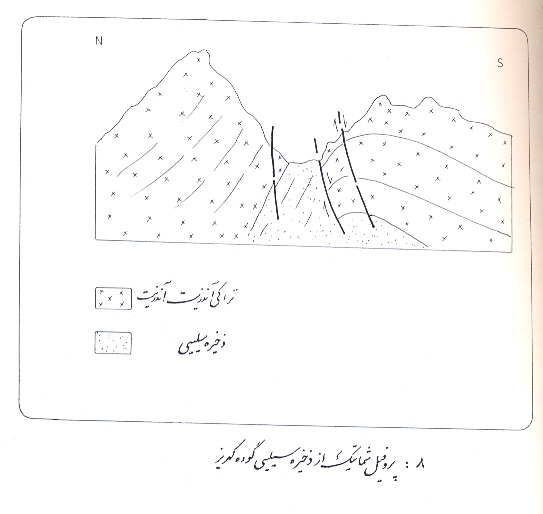 N
S
تراکی آندزیت آندزیت
ذخیره سیلیسی
۸ : پروفیل شماتیک از ذخیره سیلیسی گوده کهریز